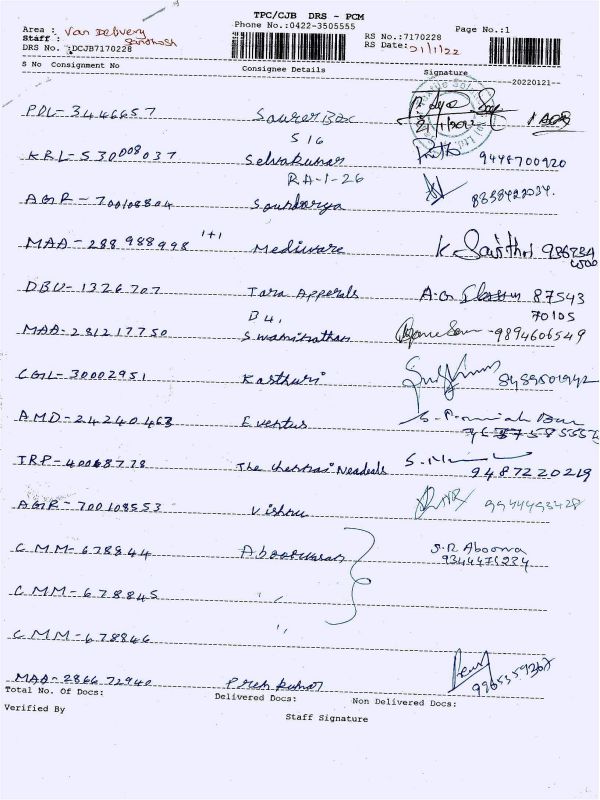 TPC/CJB DRS - PCM
Phone No.:0422-3505555
Area : Van Delivery
Staff : Santhosh
DRS No. :DCJB7170228
RS No.:7170228
RS Date: 21/1/22
Page No.:1
S No Consignment No Consignee Details Signature
20220121--
PDL-3446657
516
KRL-530008037 Selvakumar 9444700920
RA-1-26
AGR-700108804 Soundarya
MAA-288988998 1+1 Mediware K
DBU-1326707 Tara Apperals 87543
70105
B41
MAA-281217750 Swaminathan 9894606549
CGL-30002951 Kasthuri
AMD-24240463 Eventus
TRP-40068778 The Chennai 9487220219
AGR-700108553 Vishnu 9944493428
CMM-678844 S.R Aboorva
9344471234
CMM-678845 ,,
CMM-678846 ,,
MAA-286672940 Prem Kumar 9965359267
Total No. Of Docs: Delivered Docs: Non Delivered Docs:
Verified By
Staff Signature